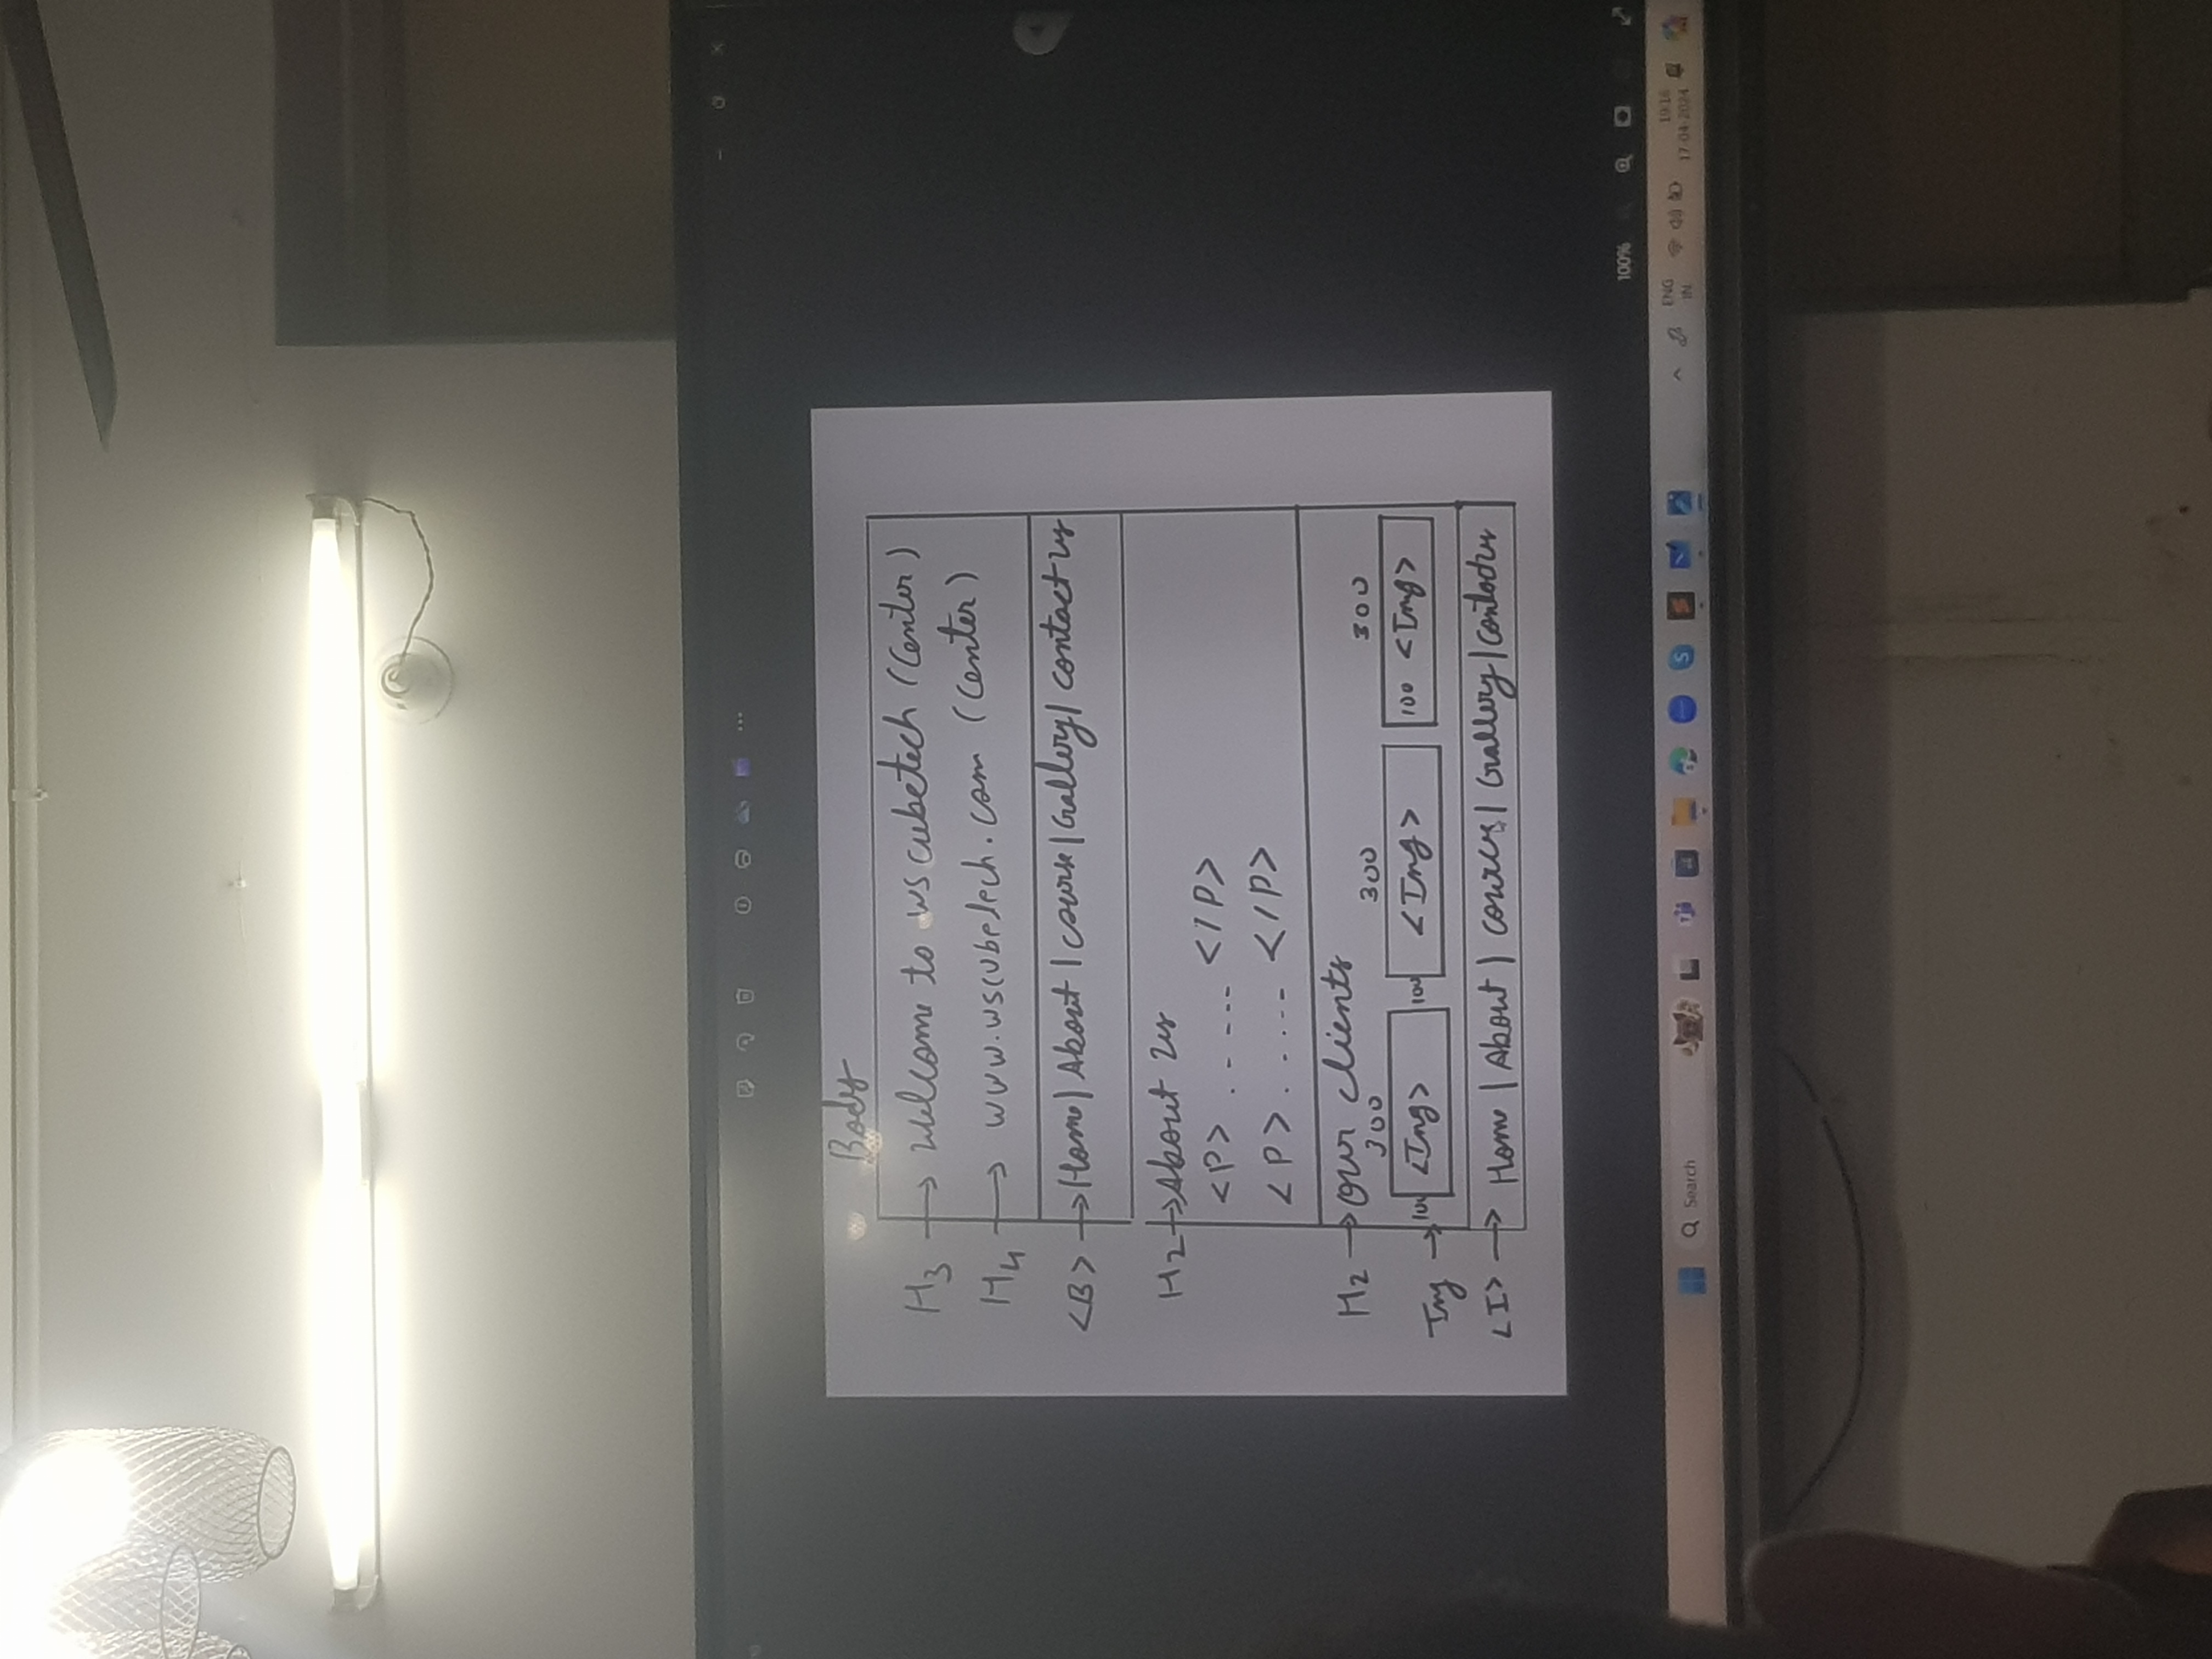 Body
H3 → Welcome to ws cubetech (Center)
H4 → www.wscubetech.com (Center)
<B> → Home | About | course | Gallery | contact us
H2 → About us
<P> . - --- </P>
<P> . . ... -- </P>
H2 → our clients
300 300 300
Img → 100 <Img> 100 <Img> 100 <Img>
<I> → Home | About | courses | Gallery | Contactus
100%
Search
ENG
IN
19:16
17-04-2024